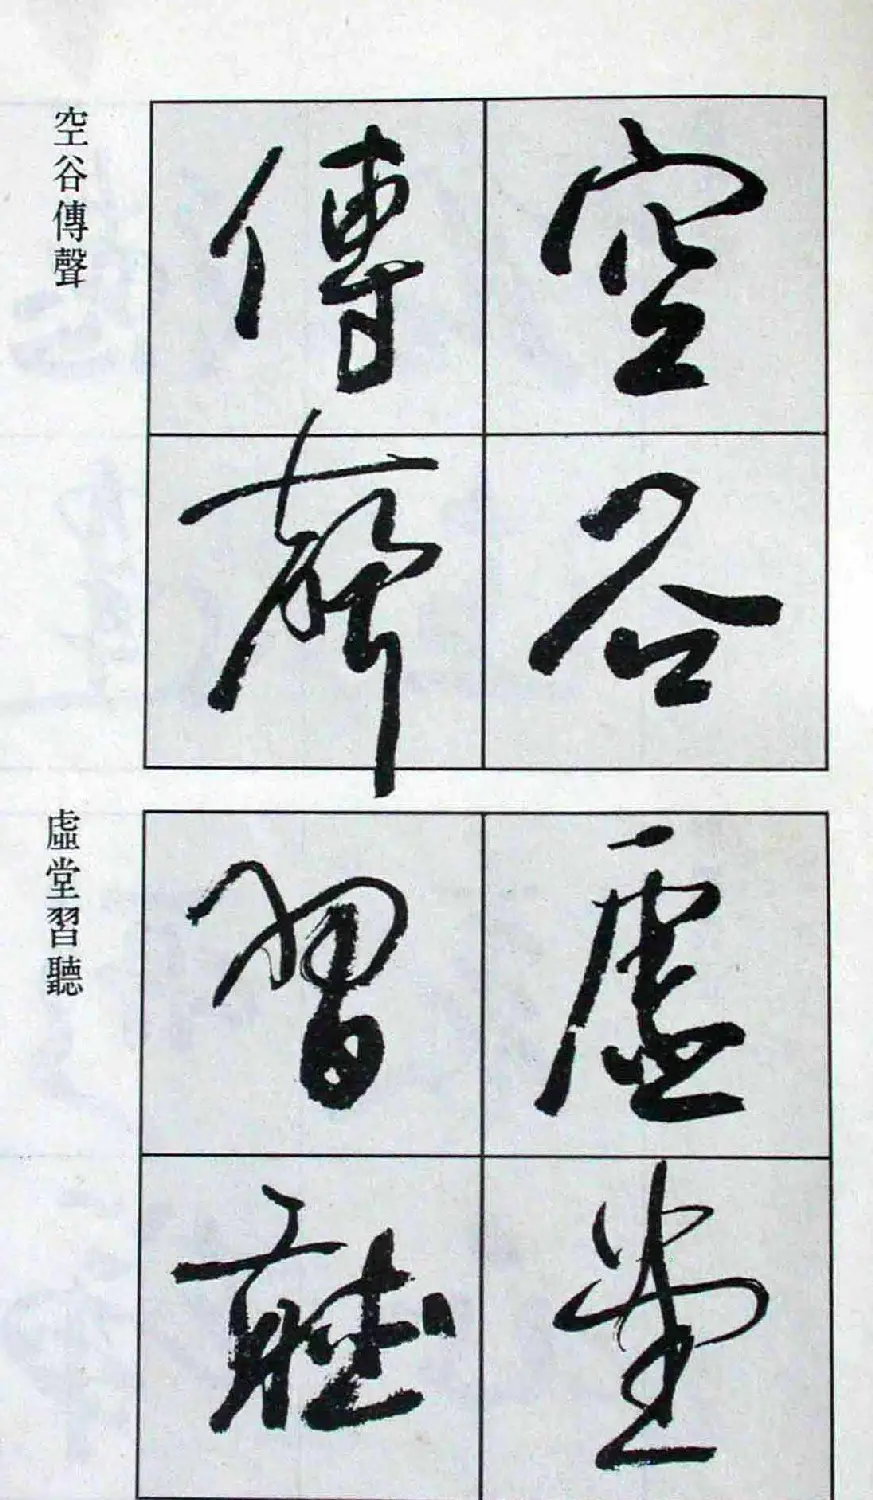 空谷
傳聲
空谷傳聲
虛堂
習聽
虛堂習聽